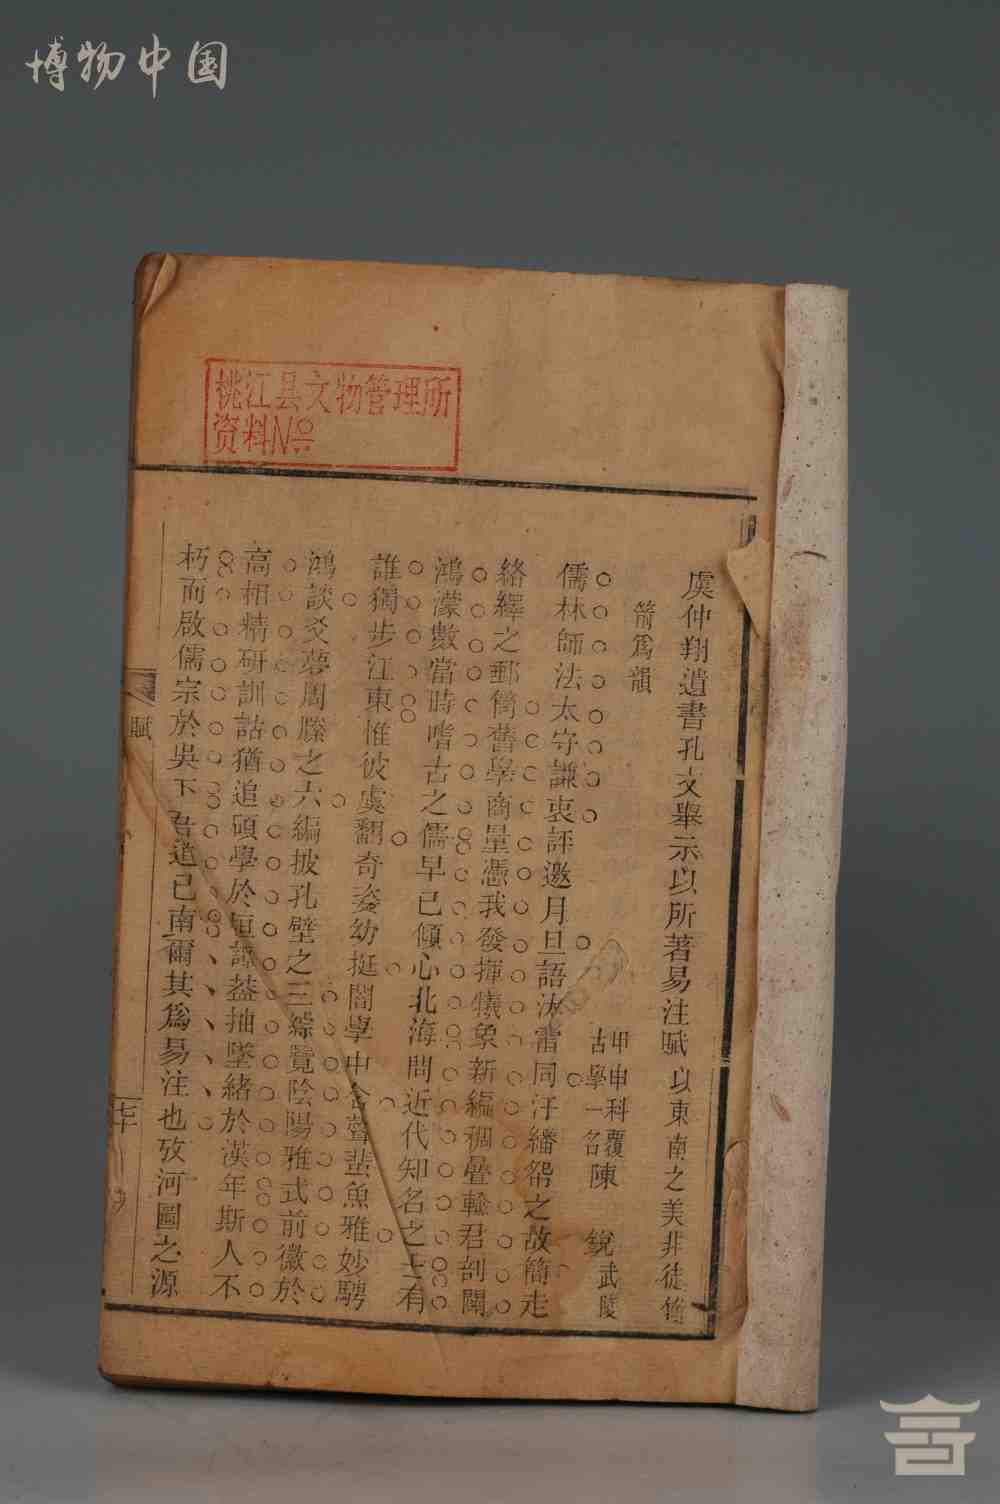 博物中国
桃江县文物管理所
资料№
虞仲翔遺書孔文舉示以所著易注賦以東南之美非徒竹
箭爲韻
甲申科覆
古學一名陳銳武陵
儒林師法太守謙衷評邀月旦語汰雷同汗繙帤之故簡走
絡繹之郵筒舊學商量憑我發揮犧象新編稠疊輸君剖闢
鴻濛數當時嗜古之儒早已傾心北海問近代知名之士有
誰獨步江東惟彼虞翻奇姿幼挺闇學中含聲蜚魚雅妙騁
鴻談爻夢周縢之六編披孔壁之三綜覽陰陽雅式前徽於
高相精研訓詁猶追碩學於桓譚葢抽墜緒於漢年斯人不
朽而啟儒宗於吳下吾道已南爾其爲易注也攷河圖之源
賦
七十